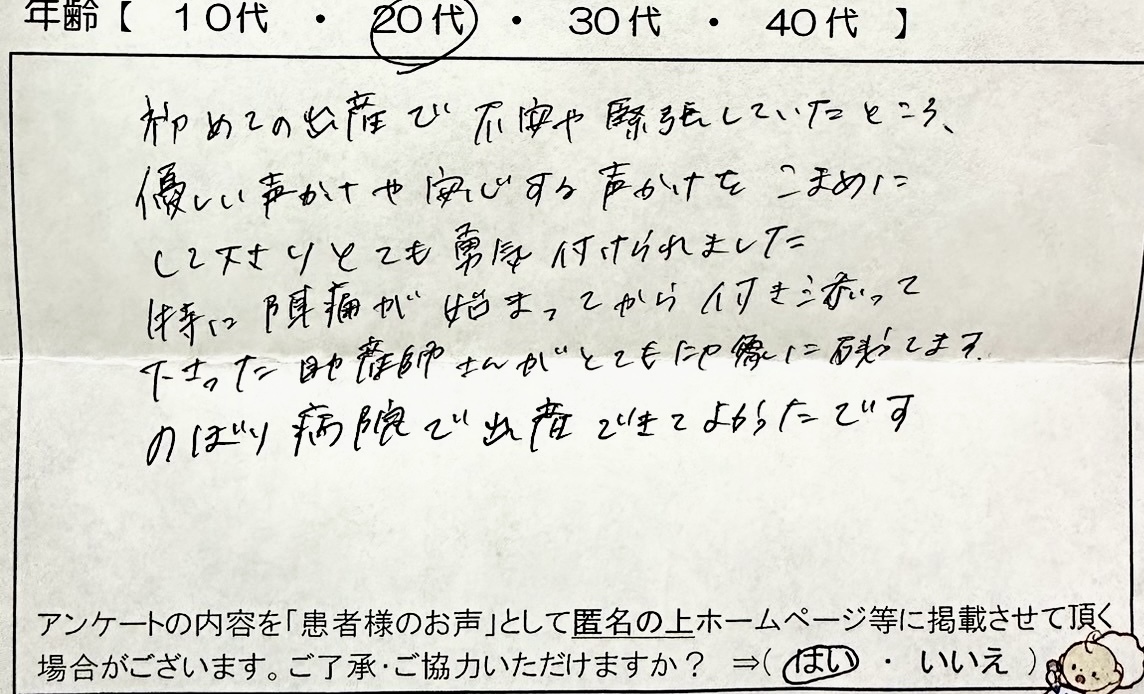 年齢【 10代 ・ 20代 ・ 30代 ・ 40代 】
初めての出産で不安や緊張していたところ、
優しい声かけや安心する声かけをこまめに
して下さりとても勇気付けられました
特に陣痛が始まってから付き添って
下さった助産師さんがとても印象に残ってます
のぼり病院で出産できてよかったです
アンケートの内容を「患者様のお声」として匿名の上ホームページ等に掲載させて頂く
場合がございます。ご了承・ご協力いただけますか? ⇒( はい ・ いいえ )